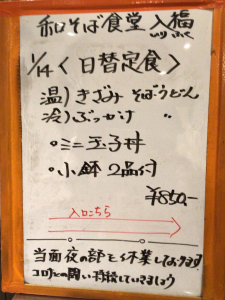 和そば食堂 入福
1/14〈日替定食〉
温)きざみ そばうどん
冷)ぶっかけ 〃
・ミニ玉子丼
・小鉢2品付
¥850-
入口こちら
当面夜の部を休業しております
コロナとの闘い 持続していきましょう